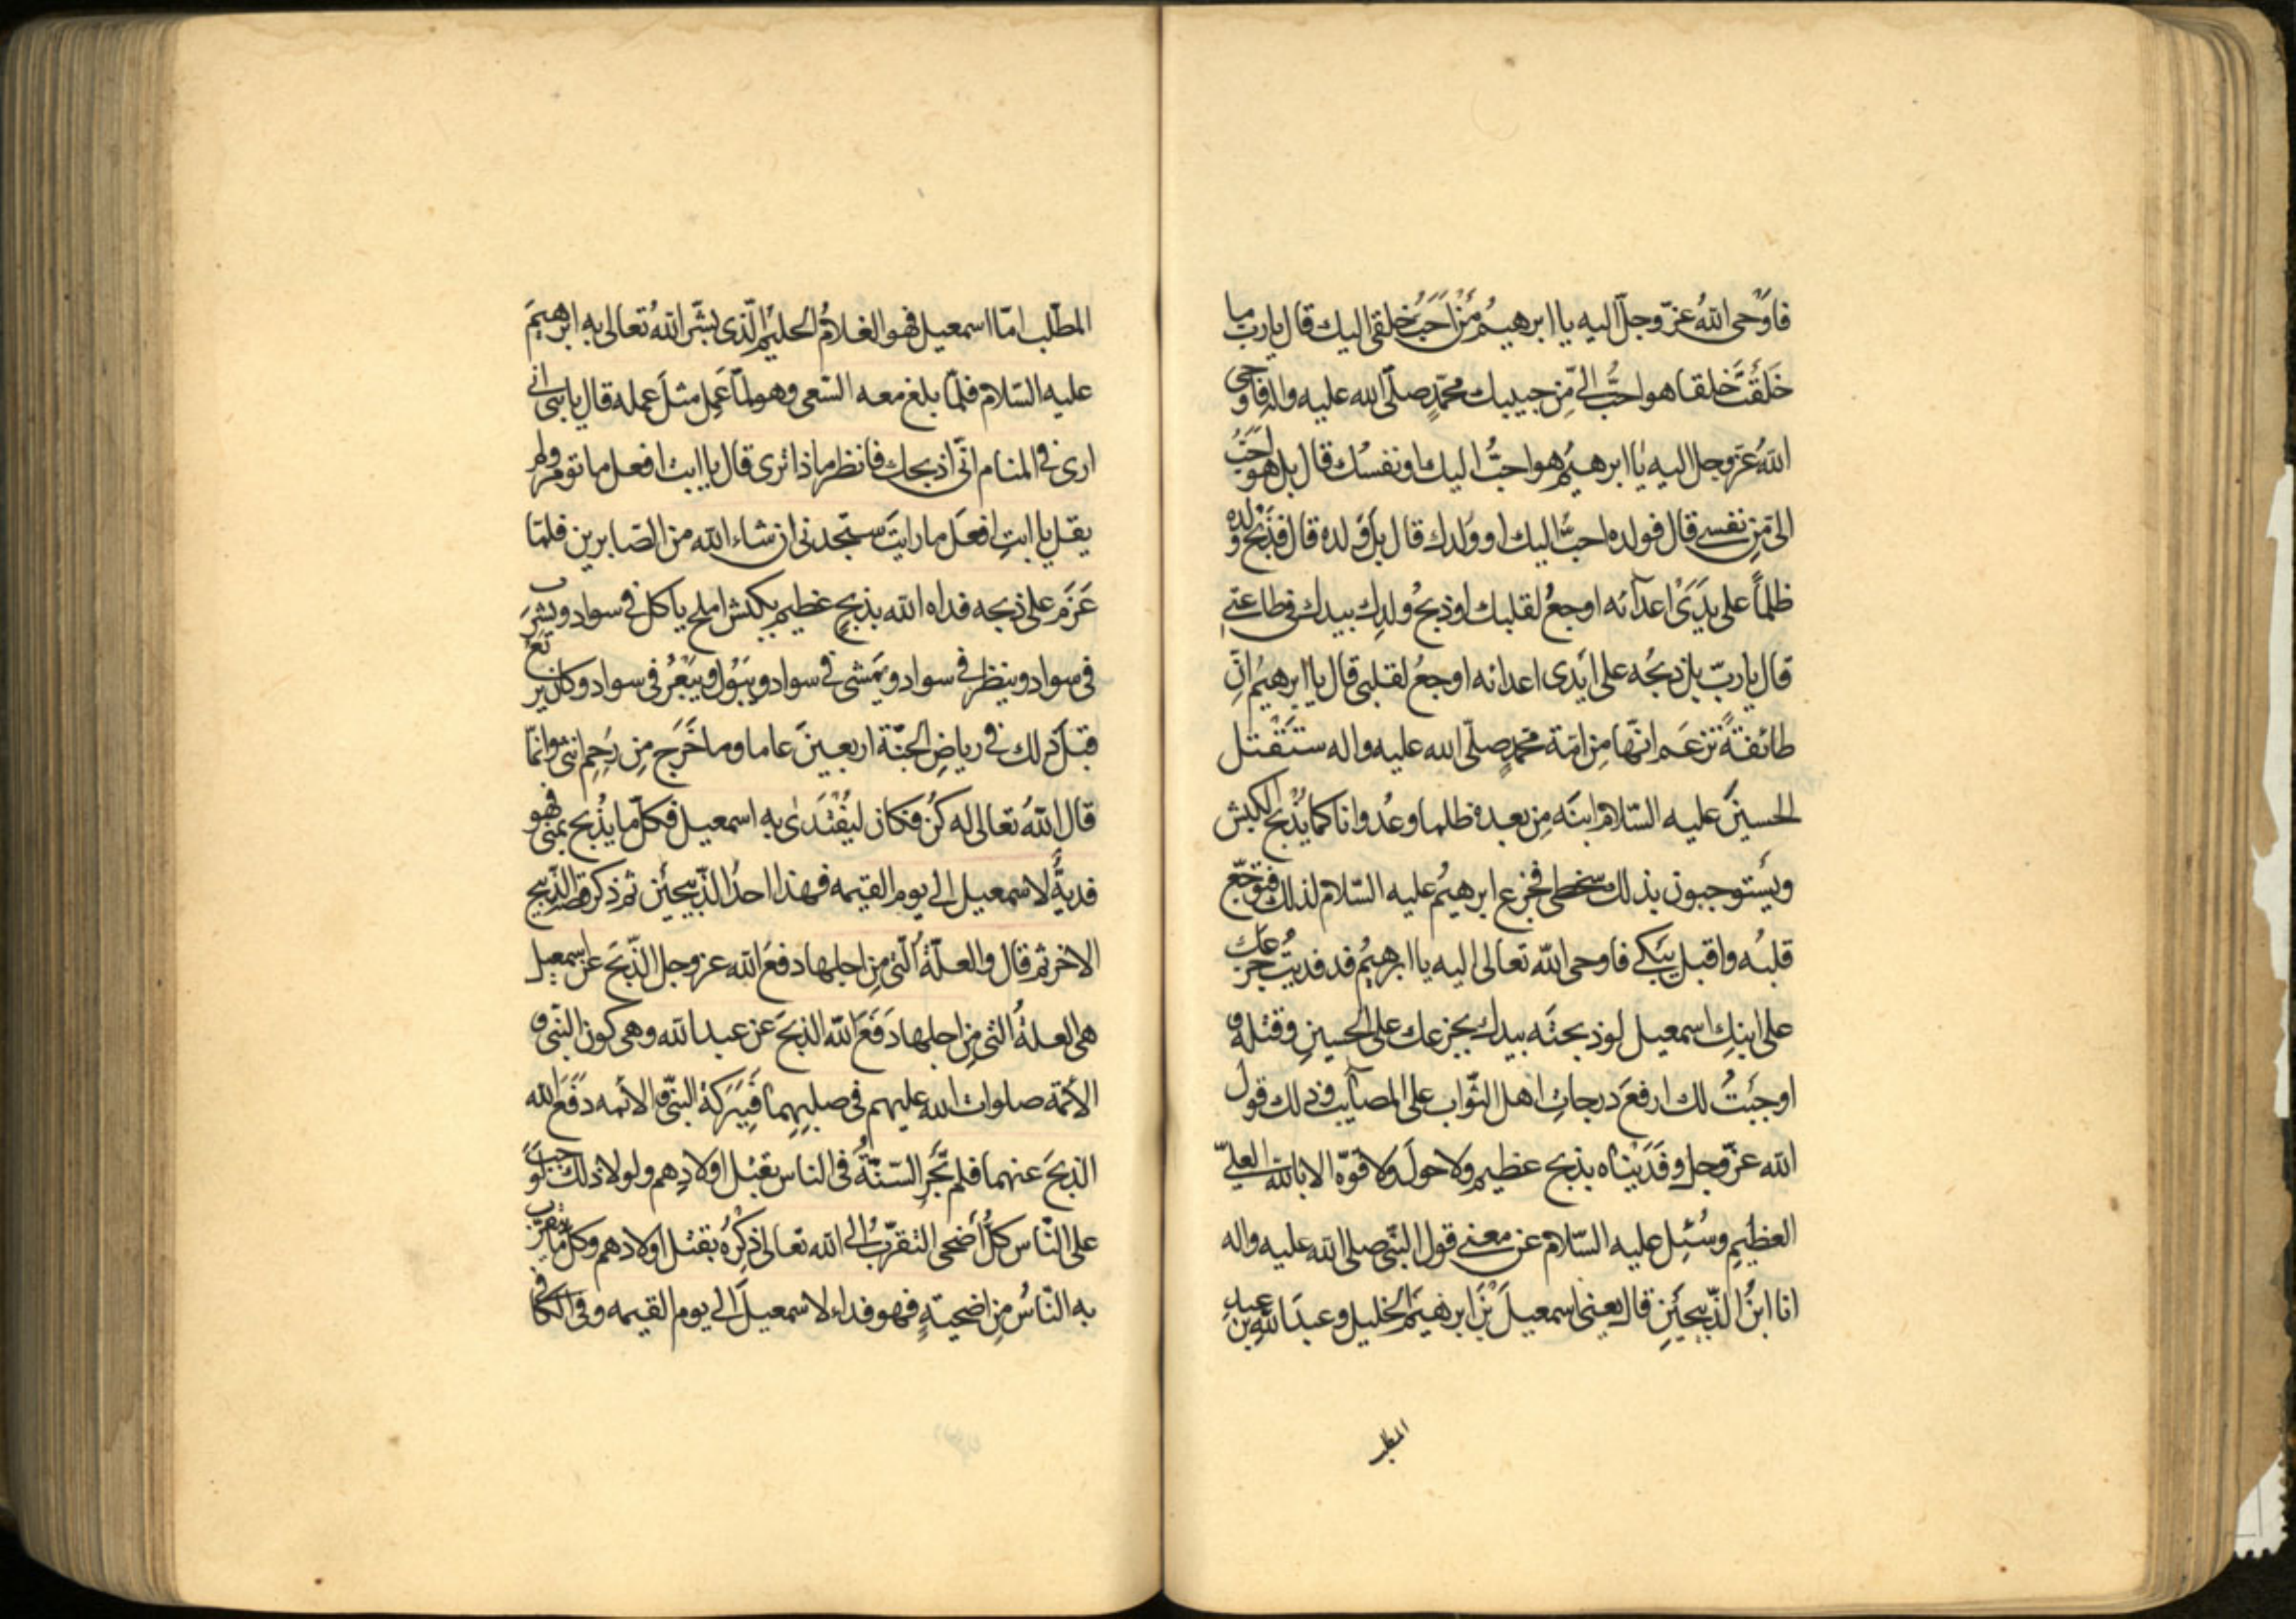 فاوحی اللهُ عزّ وجلّ الیه یا ابرهیمُ مَنْ اَحَبُّ خلقی الیك قال یا ربّ ما
خَلَقْتَ خلقا هو احبُّ الیّ مِن حبیبك محمّدٍ صلّی الله علیه واله فاوحی
اللهُ عزّ وجل الیه یا ابرهیمُ هو احبُّ الیك او نفسُك قال بل هو احَبُّ
الیّ مِن نفسی قال فولده احبُّ الیك او ولدك قال بل ولده قال فذَبْحُ ولده
ظلماً علی یَدَیْ اعدآئه اوجعُ لقلبك او ذبحُ ولدِك بیدك فی طاعتی
قال یا ربّ بل ذبحُه علی ایدی اعدائه اوجعُ لقلبی قال یا ابرهیمُ انّ
طائفةً تزعم انّها مِن امّة محمّدٍ صلّی الله علیه واله ستَقْتل
الحسینَ علیه السّلام ابنَه مِن بعده ظلما وعُدوانا کما یُذْبح الکبش
ویَسْتوجبون بذلك سخطی فجزع ابرهیمُ علیه السّلام لذلك فتوجّع
قلبُه واقبل یبکی فاوحی الله تعالی الیه یا ابرهیمُ قد فدیتُ جزعك
علی ابنِك اسمعیل لو ذبحتَه بیدك بجزعك علی الحسینِ وقتله و
اوجبْتُ لك ارفعَ درجاتِ اهل الثّواب علی المصآئب وذلك قول
الله عزّ وجل وفَدَیْناه بذبح عظیم ولا حولَ ولا قوّة الا بالله العلیّ
العظیمِ وسُئِل علیه السّلام عن معنی قول النّبی صلی الله علیه واله
انا ابنُ الذّبیحَیْنِ قال یعنی اسمعیلَ بْنَ ابرهیمَ الخلیل وعبدَ اللهِ بن عبد
المطلب
المطّلب امّا اسمعیل فهو الغلامُ الحلیم الّذی بشّر اللهُ تعالی به ابرهیمَ
علیه السّلام فلمّا بلغ معه السّعی وهو لمّا عَمِل مثلَ عمله قال یا بنی انی
اری فی المنام انّی اذبحك فانظر ماذا تری قال یا ابت افعل ما تؤمر ولم
یقل یا ابتِ افعَل ما رایتَ ستجدنی ان شاء الله من الصّابرین فلمّا
عَزَمَ علی ذبحه فداه الله بذبحٍ عظیم بکبش املح یاکل فی سواد ویشرَب
فی سواد وینظر فی سواد ویَمْشی فی سواد ویَبُول ویَبْعَرُ فی سواد وکان یرتع
قبل ذلك فی ریاضِ الجنّة اربعینَ عاما وما خَرَج مِن رَحِمِ انثی وانّما
قال اللهُ تعالی له کُن فکان لیُفْتَدیٰ به اسمعیل فکلّ ما یُذْبح بمنی فهو
فدیةٌ لاسمعیل الی یوم القیمه فهذا احدُ الذّبیحَیْن ثم ذکر قصّة الذّبیح
الاخر ثم قال والعلّةُ الّتی مِن اجلها دفعَ الله عزوجل الذّبحَ عن اسمعیل
هی العلةُ التی مِن اجلها دَفَعَ الله الذبحَ عن عبد الله وهی کون النّبی و
الائمّة صلوات الله علیهم فی صلبِهما فَبِبَرَکة النّبی والائمه دَفَعَ الله
الذبحَ عنهما فلم تَجْرِ السّنّةُ فی الناس بقتل اولادِهم ولولا ذلك لوجبَ
علی النّاس کلّ اَضحی التقرّبُ الی الله تعالی ذکرُه بقتل اولادهم وکلّ ما یتقرّب
به النّاسُ مِن اضحیّةٍ فهو فداء لاسمعیلَ الی یوم القیمه وفی الکافی